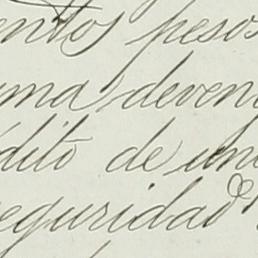 entos pesos
uma deven
édito de un
seguridad